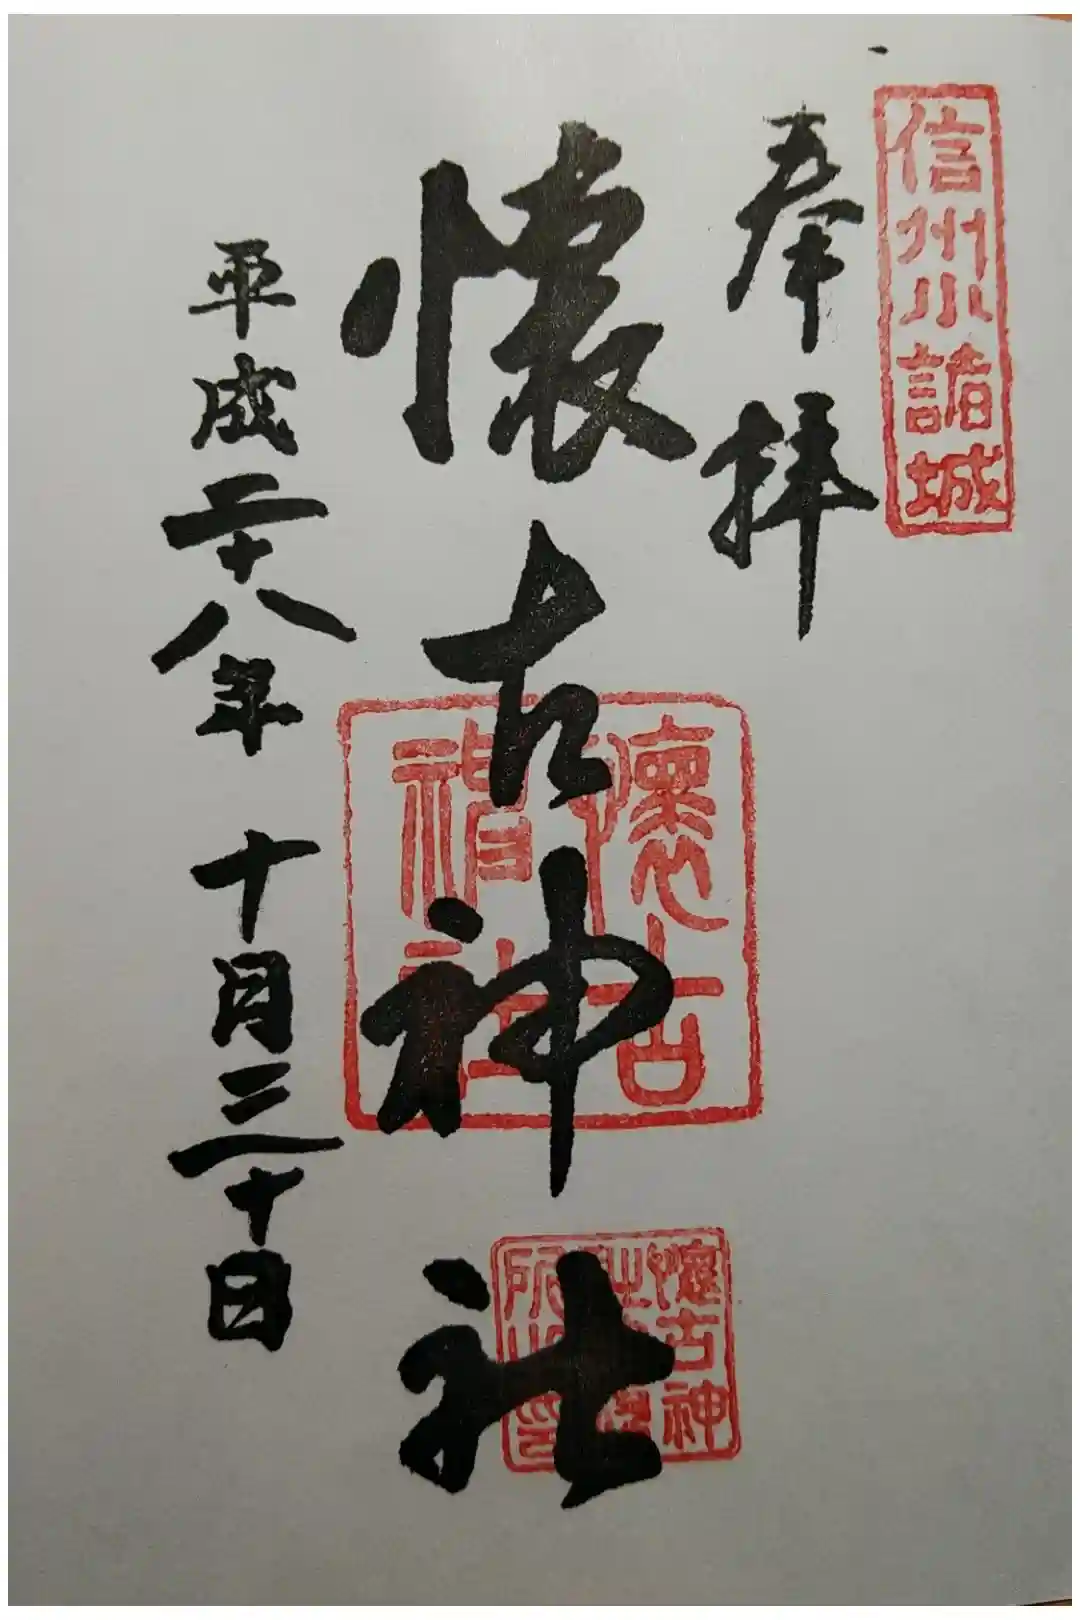 信州小諸城
奉拝
懐古神社
懐古
神社
懐古神
平成二十八年 十月三十日